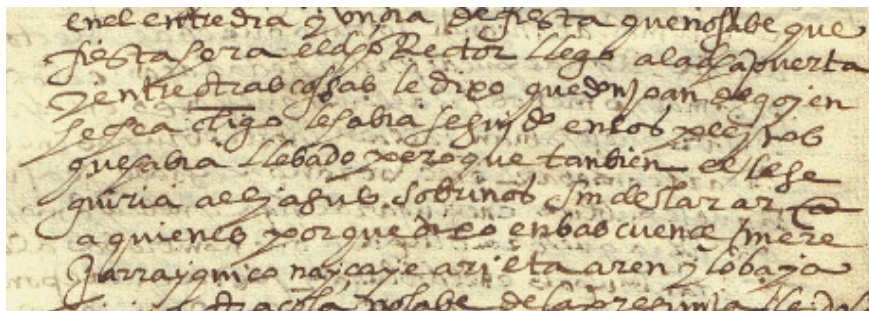 en el entredia y un dia de fiesta que no sabe que
fiesta sera el dho Rector llego a la dha puerta
y entre otras cossas le dixo que don Joan de goien
se sea ctigo le abia seguido en los pleytos
que abia llebado pero que tanbien el le se
guiria a el y a sus sobrinos sin declarar
a quienes porque dixo en bascuence, nere
Jarrayqui co naycaye ari eta aren y lobaja
otra cossa no sabe de la pregunta